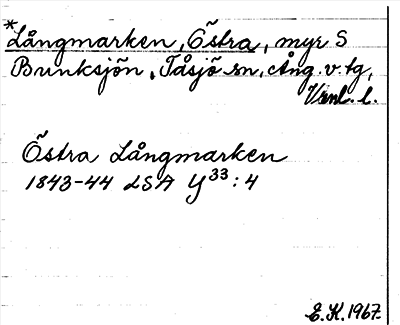 *Långmarken, Östra, myr S
Bunksjön, Tåsjö sn, Ång. v. tg,
Vänl. l.
Östra Långmarken
1843-44 LSA Y³³:4
E. K. 1967.